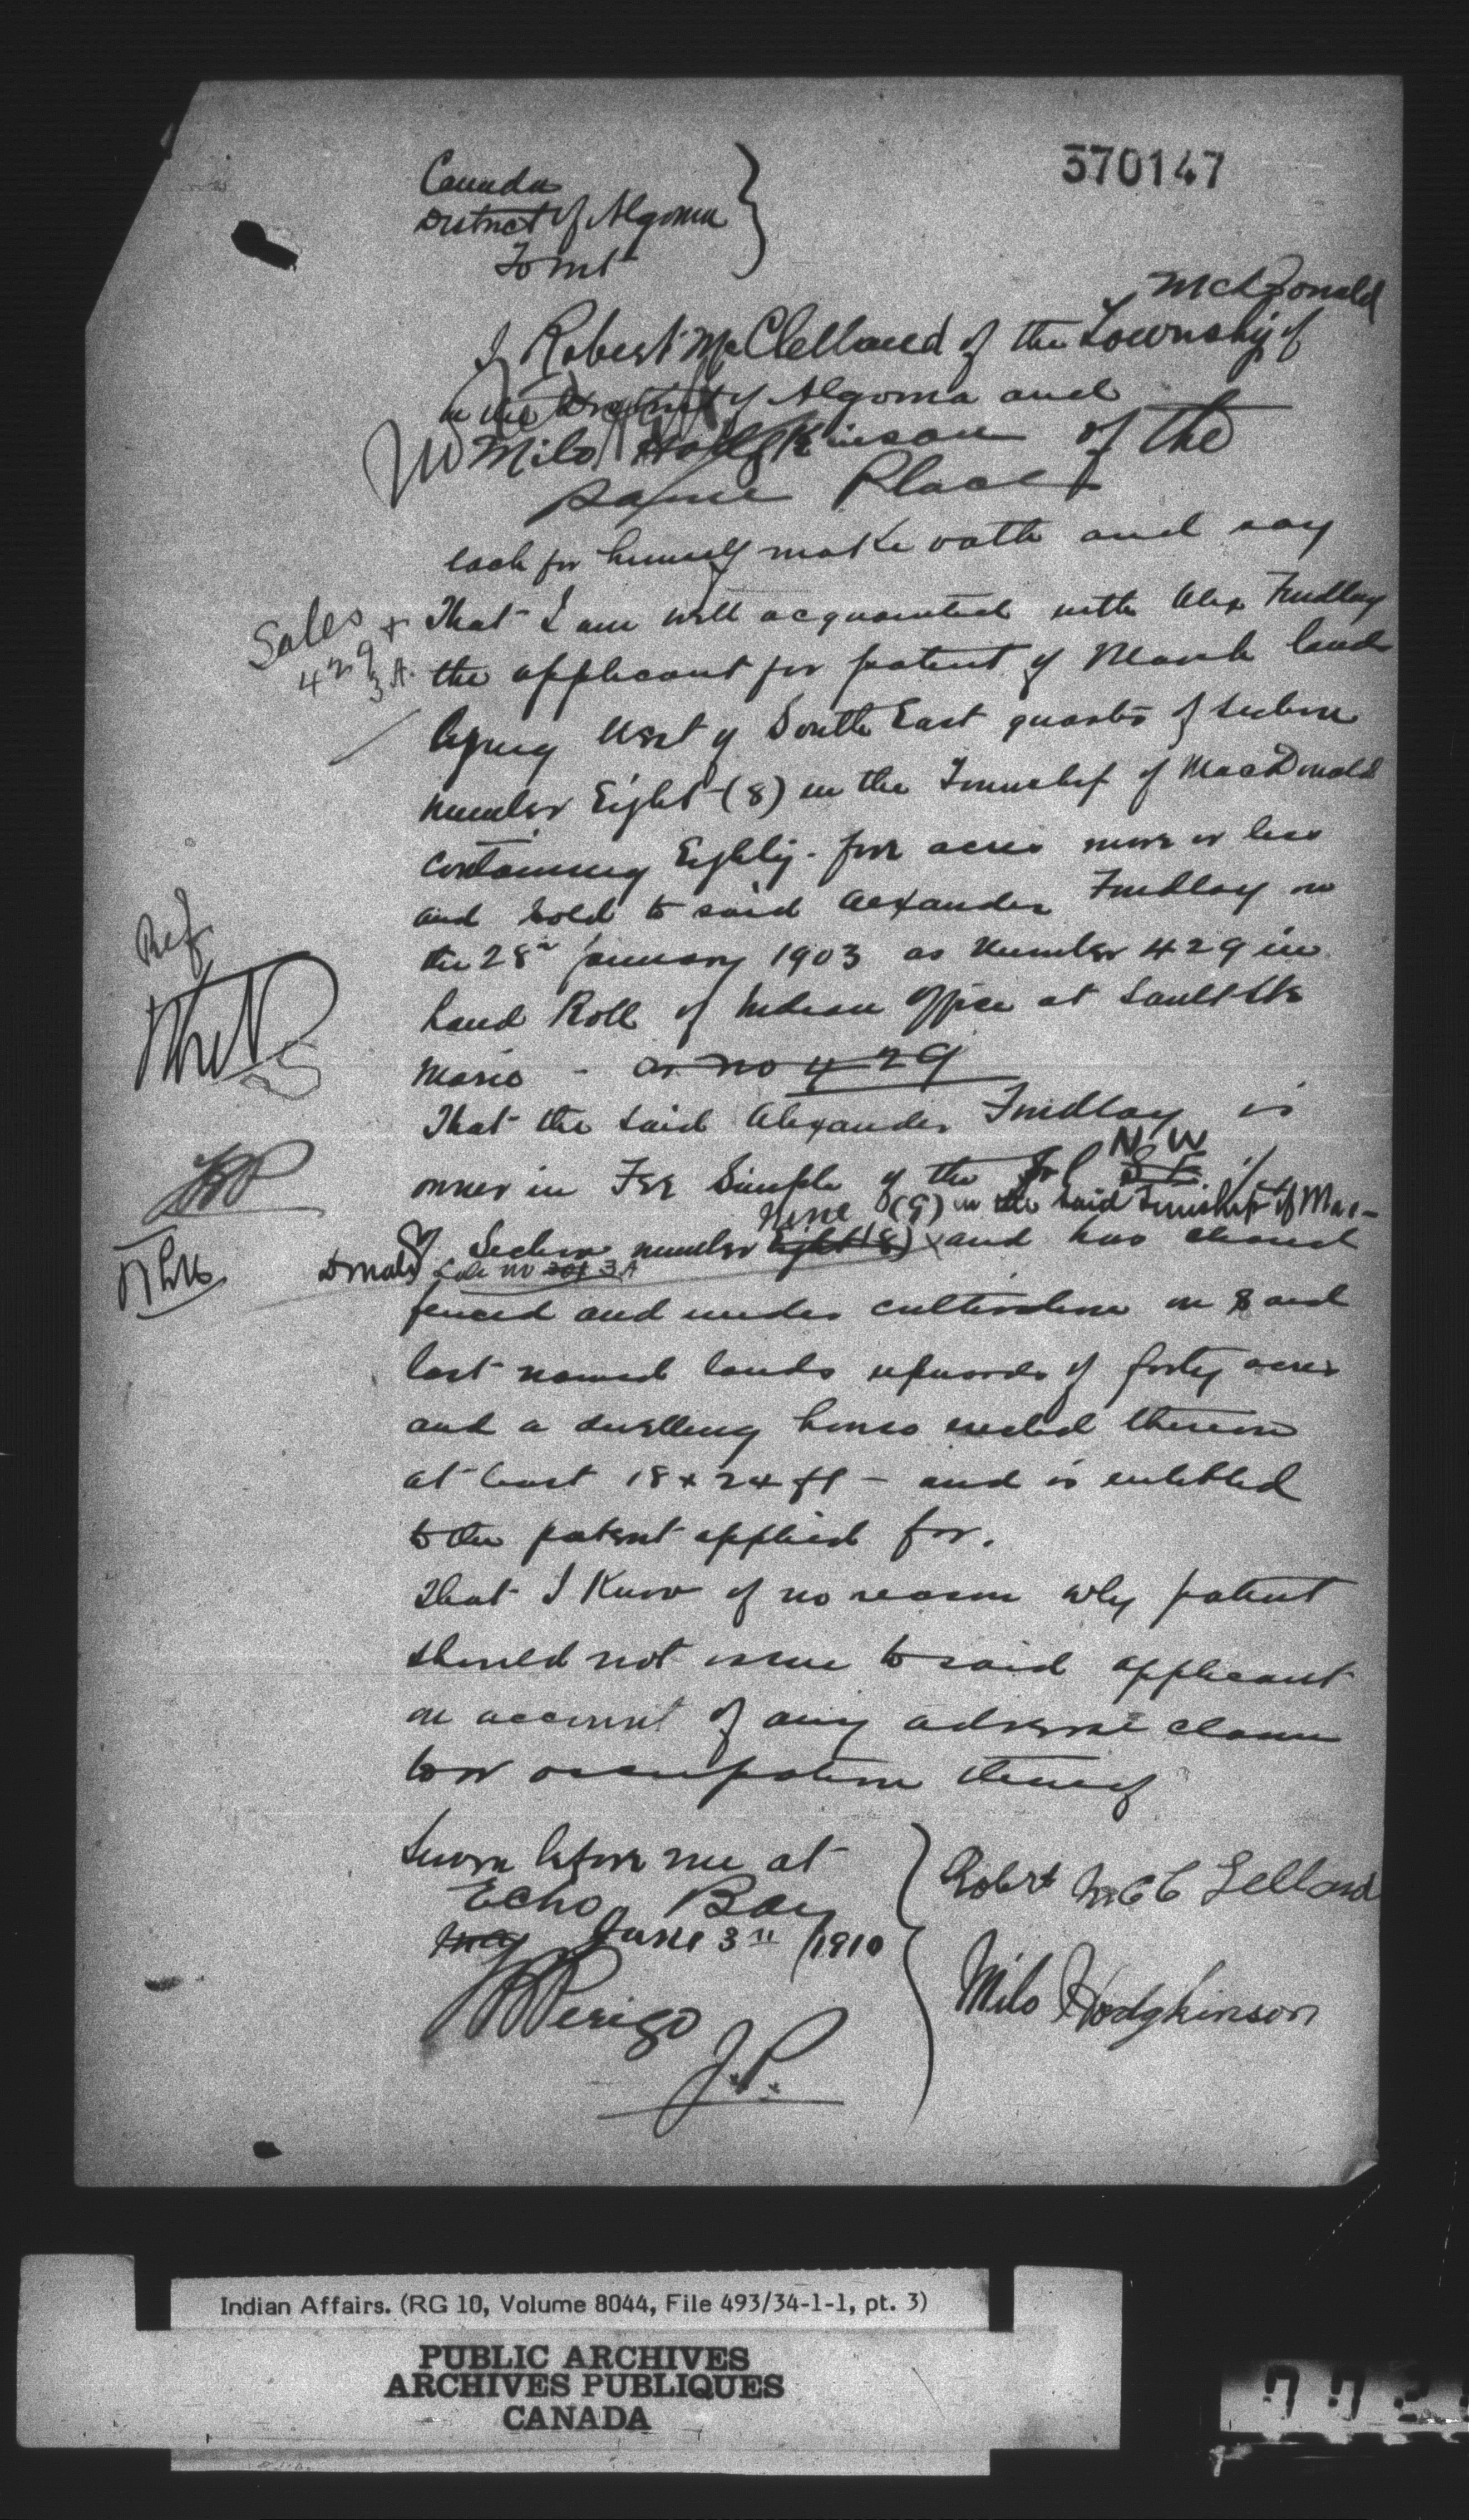 570147
Canada
District of Algoma
To Wit
McDonald
I Robert McClelland of the Township of
in the District of Algoma and
Milo Hodgkinson of the
same Place
each for himself make oath and say
Sales
429 +
3A.
That I am well acquainted with Alex Findlay
the applicant for patent of Marsh land
lying West of South East quarter of Section
number Eight (8) in the Township of MacDonald
containing Eighty-four acres more or less
and sold to said Alexander Findlay on
the 28th January 1903 as number 429 in
Land Roll of Indian Office at Sault Ste
Marie - as no 429
Ref
That the said Alexander Findlay is
owner in Fee Simple of the N W 1/4
Nine (9) in the said Township of Mac-
Donald
of Section number Eight (8) and has cleared
Sale no 3A
fenced and under cultivation on said
last named lands upwards of forty acres
and a dwelling house erected thereon
at least 18 x 24 ft - and is entitled
to the patent applied for.
That I know of no reason why patent
should not issue to said applicant
on account of any adverse claim
to or occupation thereof
Sworn before me at
Echo Bay
June 3rd 1910
Perigo
J.P.
Robert McClelland
Milo Hodgkinson
Indian Affairs. (RG 10, Volume 8044, File 493/34-1-1, pt. 3)
PUBLIC ARCHIVES
ARCHIVES PUBLIQUES
CANADA